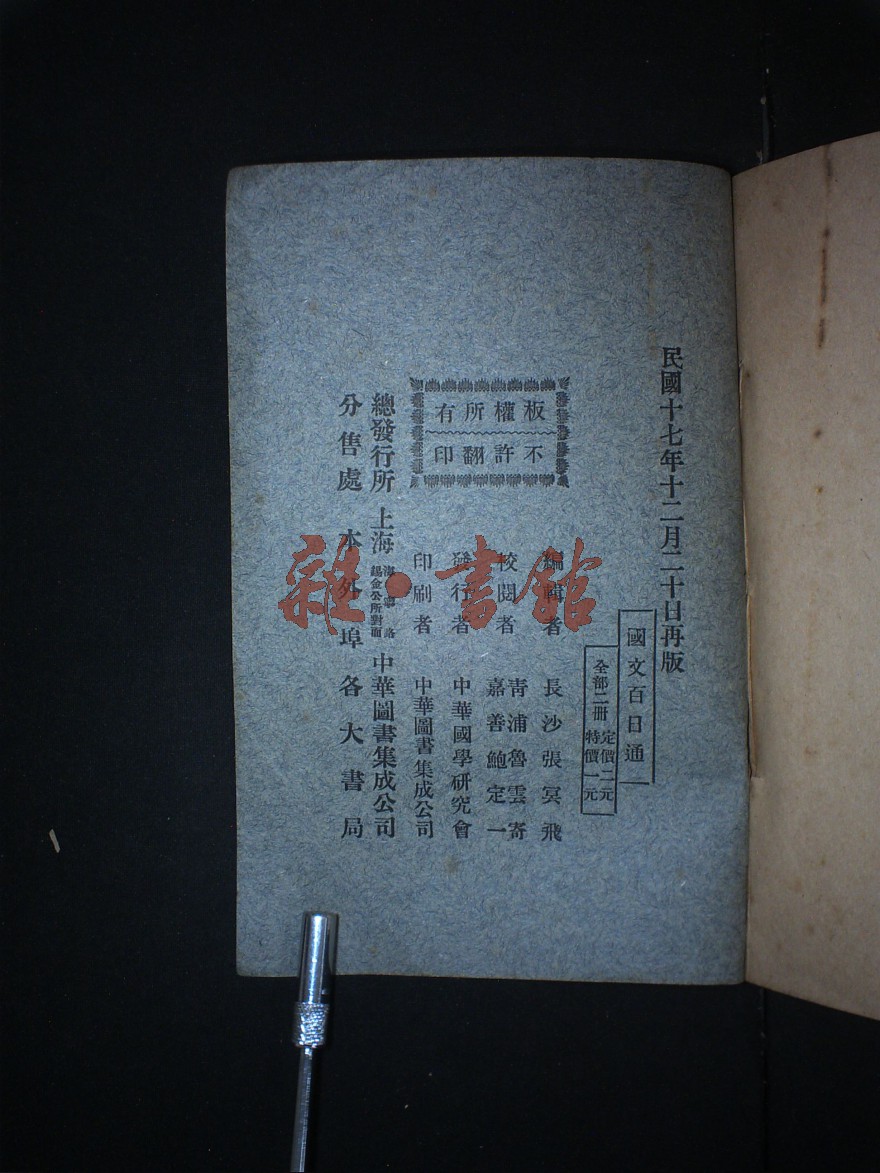 民國十七年十二月二十日再版
國文百日通
全部二冊 定價二元
特價一元
板權所有
不許翻印
編輯者 長沙張冥飛
校閱者 青浦魯雲奇
嘉善鮑定一
發行者 中華國學研究會
印刷者 中華圖書集成公司
總發行所 上海 海寧路
錫金公所對面 中華圖書集成公司
分售處 本外埠各大書局
雜·書館